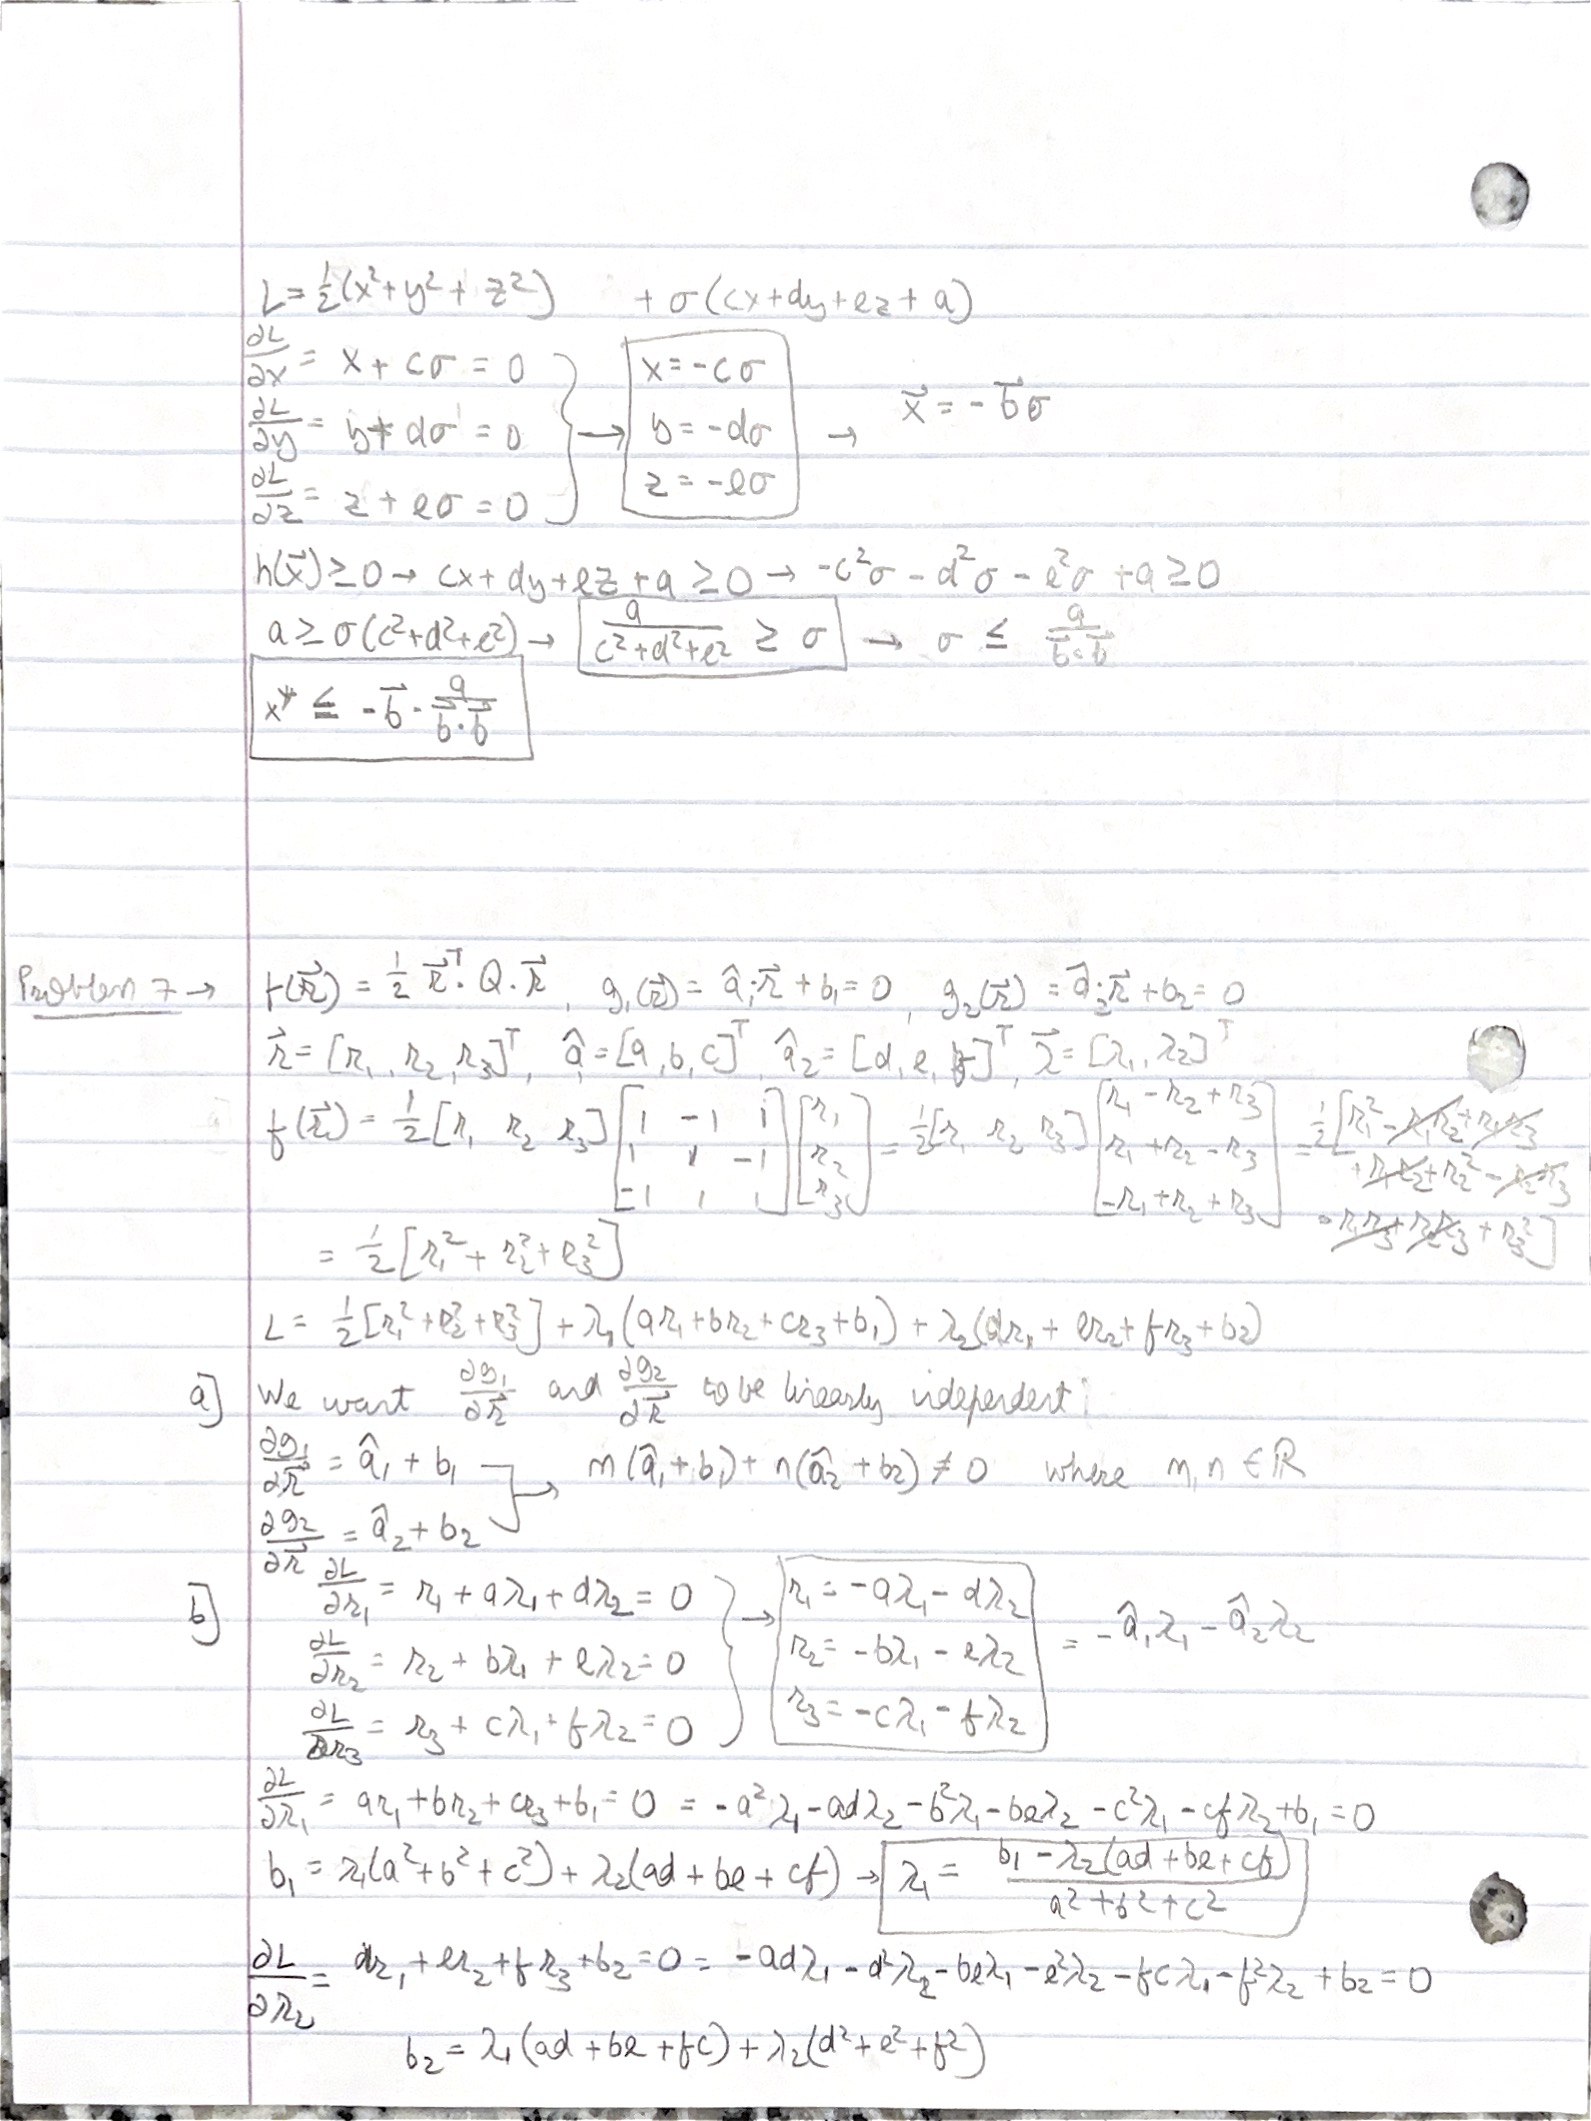 L = ½(x² + y² + z²) + σ(cx + dy + ez + a)
∂L/∂x = x + cσ = 0
∂L/∂y = y + dσ = 0
∂L/∂z = z + eσ = 0
→ x = -cσ
y = -dσ
z = -eσ
→ x⃗ = -b⃗σ
h(x⃗) ≥ 0 → cx + dy + ez + a ≥ 0 → -c²σ - d²σ - e²σ + a ≥ 0
a ≥ σ(c² + d² + e²) → a/(c² + d² + e²) ≥ σ → σ ≤ a/(b⃗·b⃗)
x* ≤ -b⃗ · a/(b⃗·b⃗)
Problem 7 → f(r⃗) = ½ r⃗ᵀ·Q·r⃗, g₁(r⃗) = â₁·r⃗ + b₁ = 0, g₂(r⃗) = â₂·r⃗ + b₂ = 0
r⃗ = [r₁, r₂, r₃]ᵀ, â₁ = [a, b, c]ᵀ, â₂ = [d, e, f]ᵀ, λ⃗ = [λ₁, λ₂]ᵀ
f(r⃗) = ½[r₁ r₂ r₃] [1 -1 1; 1 1 -1; -1 1 1] [r₁; r₂; r₃] = ½[r₁ r₂ r₃] [r₁ - r₂ + r₃; r₁ + r₂ - r₃; -r₁ + r₂ + r₃] = ½[r₁² - r₁r₂ + r₁r₃
+ r₁r₂ + r₂² - r₂r₃
- r₁r₃ + r₂r₃ + r₃²]
= ½[r₁² + r₂² + r₃²]
L = ½[r₁² + r₂² + r₃²] + λ₁(ar₁ + br₂ + cr₃ + b₁) + λ₂(dr₁ + er₂ + fr₃ + b₂)
a] We want ∂g₁/∂r⃗ and ∂g₂/∂r⃗ to be linearly independent:
∂g₁/∂r⃗ = â₁ + b₁ → m(â₁ + b₁) + n(â₂ + b₂) ≠ 0 where m, n ∈ ℝ
∂g₂/∂r⃗ = â₂ + b₂
b] ∂L/∂r₁ = r₁ + aλ₁ + dλ₂ = 0
∂L/∂r₂ = r₂ + bλ₁ + eλ₂ = 0
∂L/∂r₃ = r₃ + cλ₁ + fλ₂ = 0
→ r₁ = -aλ₁ - dλ₂
r₂ = -bλ₁ - eλ₂
r₃ = -cλ₁ - fλ₂
= -â₁λ₁ - â₂λ₂
∂L/∂λ₁ = ar₁ + br₂ + cr₃ + b₁ = 0 = -a²λ₁ - adλ₂ - b²λ₁ - beλ₂ - c²λ₁ - cfλ₂ + b₁ = 0
b₁ = λ₁(a² + b² + c²) + λ₂(ad + be + cf) → λ₁ = (b₁ - λ₂(ad + be + cf))/(a² + b² + c²)
∂L/∂λ₂ = dr₁ + er₂ + fr₃ + b₂ = 0 = -adλ₁ - d²λ₂ - beλ₁ - e²λ₂ - fcλ₁ - f²λ₂ + b₂ = 0
b₂ = λ₁(ad + be + fc) + λ₂(d² + e² + f²)